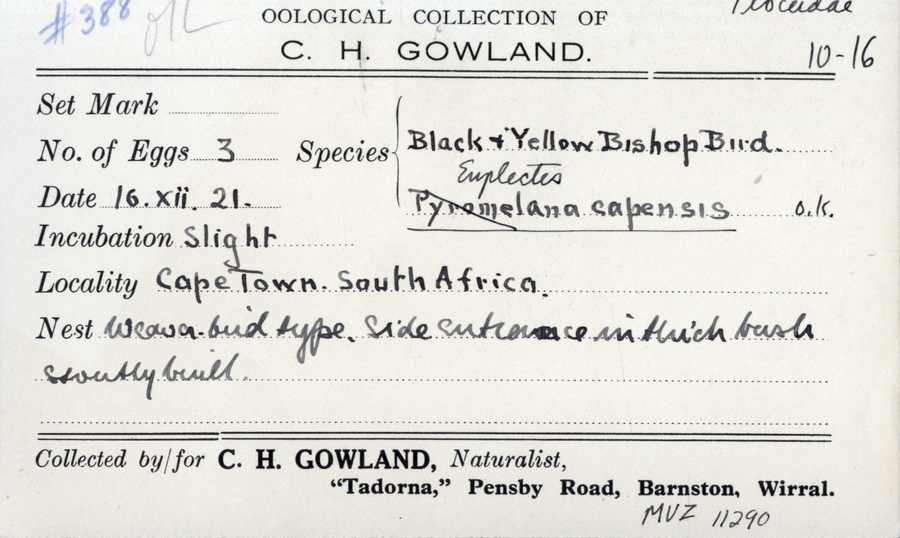 #388 OK Ploceidae
OOLOGICAL COLLECTION OF
C. H. GOWLAND. 10-16
Set Mark
No. of Eggs 3 Species Black & Yellow Bishop Bird.
Euplectes
Date 16. xii. 21. Pyromelana capensis o.k.
Incubation Slight
Locality Cape Town. South Africa.
Nest Weaver-bird type. Side entrance in thick bush
stoutly built.
Collected by/for C. H. GOWLAND, Naturalist,
"Tadorna," Pensby Road, Barnston, Wirral.
MVZ 11290